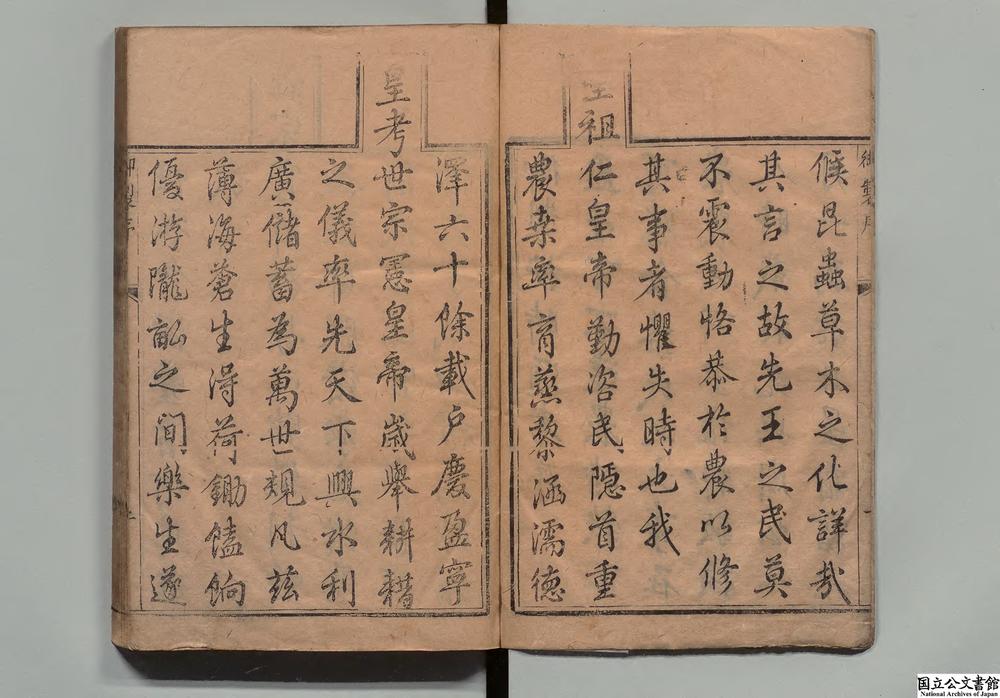 候昆蟲草木之化詳哉
其言之故先王之民莫
不震動恪恭於農以修
其事者懼失時也我
聖祖仁皇帝勤咨民隱首重
農桑率育蒸黎涵濡德
澤六十餘載户慶盈寧
皇考世宗憲皇帝歲舉耕耤
之儀率先天下興水利
廣儲蓄為萬世規凡兹
薄海蒼生得荷鋤饁餉
優游隴畝之間樂生遂
御製序
國立公文書館
National Archives of Japan